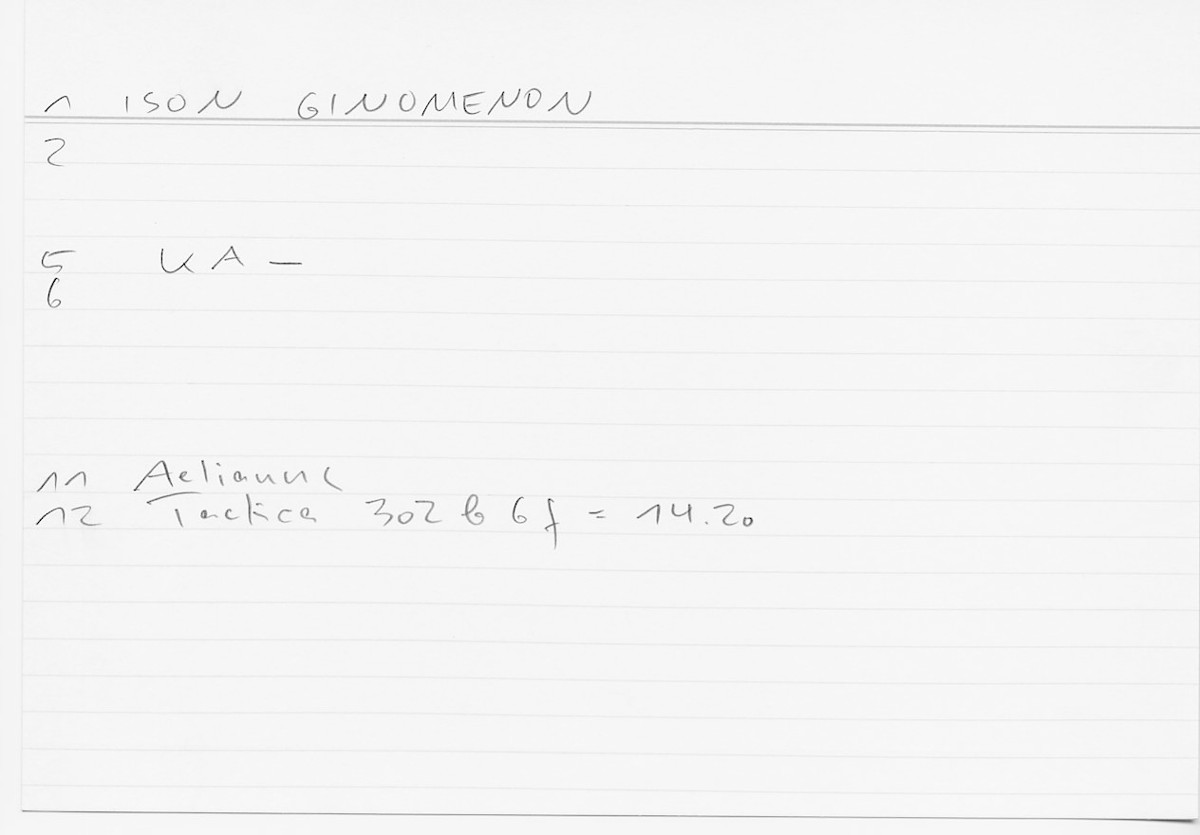 1 ISON GINOMENON
2
5 KA –
6
11 Aelianus
12 Tactica 302 b 6 f = 14.20